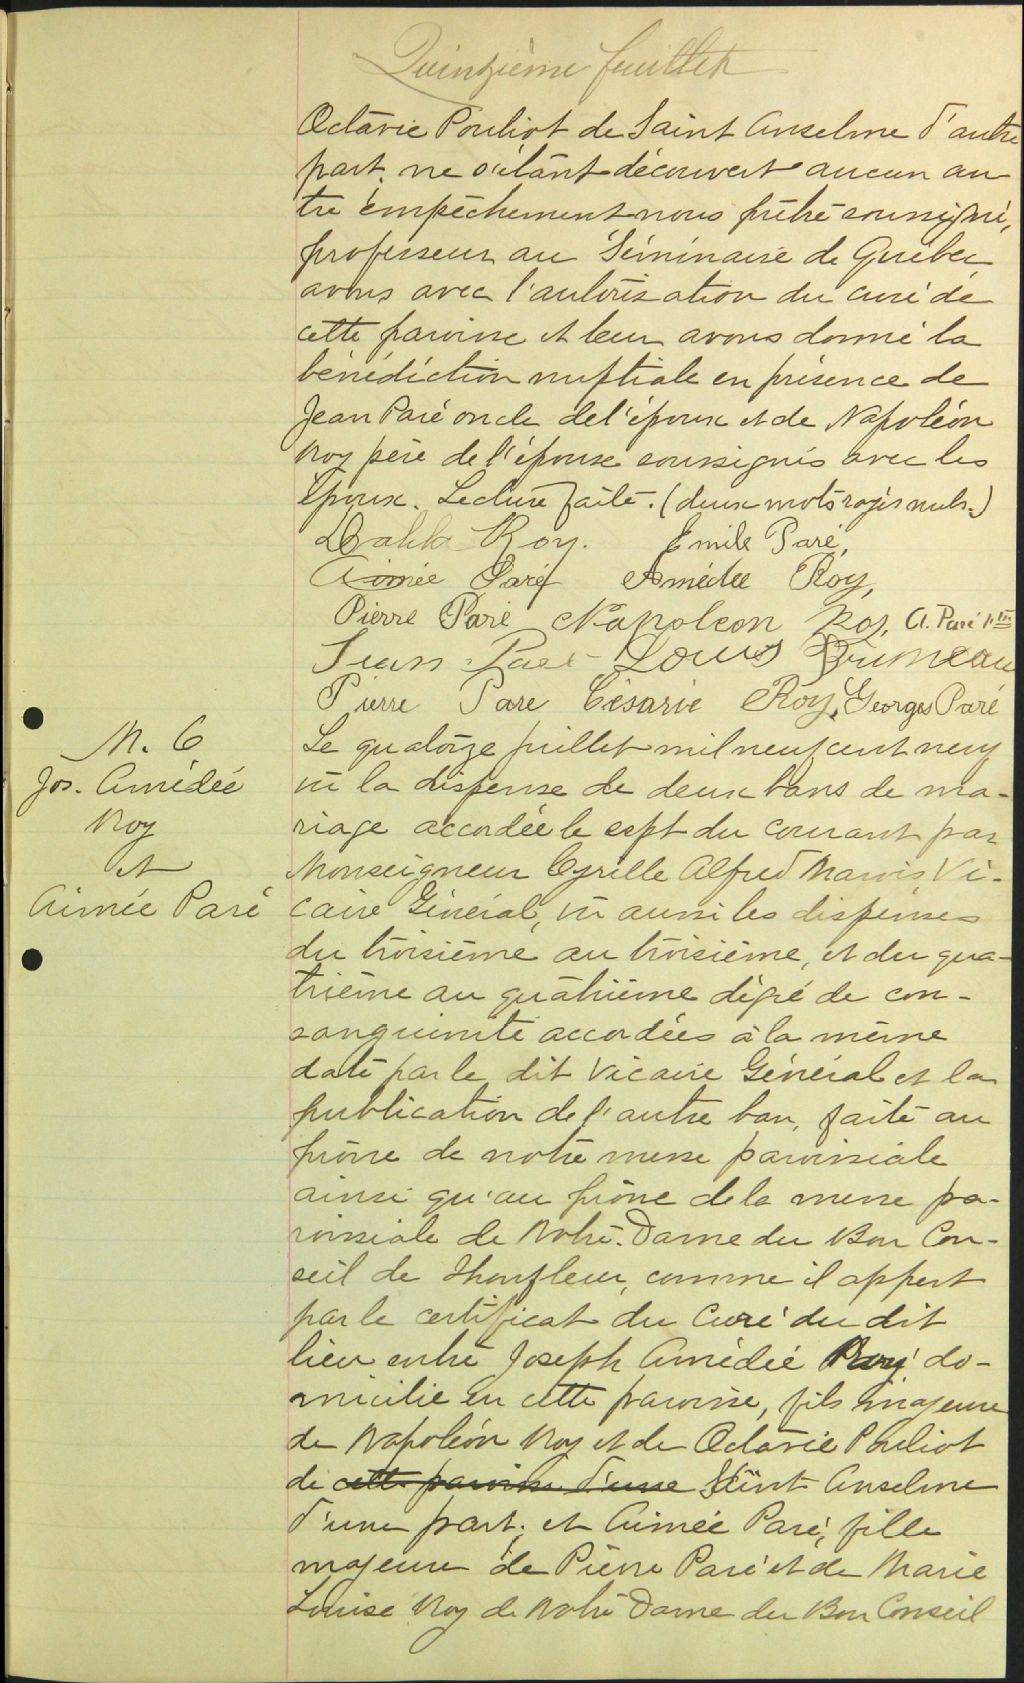 Quinzième feuillet
Octavie Pouliot de Saint Anselme d'autre
part; ne s'étant découvert aucun au
tre empêchement nous prêtre soussigné,
professeur au Séminaire de Québec
avons avec l'autorisation du curé de
cette paroisse et leur avons donné la
bénédiction nuptiale en présence de
Jean Paré oncle de l'époux et de Napoléon
Roy père de l'épouse soussignés avec les
époux. Lecture faite. (deux mots rayés nuls.)
Roy. Emile Paré,
Aimée Paré Amédée Roy,
Pierre Paré Napoleon Roy, A. Paré ptre
Jean Pare Louis Bruneau
Pierre Pare Césarie Roy, Georges Paré
M. 6
Jos. Amédée
Roy
et
Aimée Paré
Le quatorze juillet mil neuf cent neuf
vu la dispense de deux bans de ma-
riage accordée le sept du courant par
Monseigneur Cyrille Alfred Marois Vi-
caire Général, vu aussi les dispenses
du troisième au troisième, et du qua-
trième au quatrième dégré de con-
sanguinité accordées à la même
date par le dit Vicaire Général et la
publication de l'autre ban, faite au
prône de notre messe paroissiale
ainsi qu'au prône de la messe pa-
roissiale de Notre-Dame du Bon Con-
seil de Honfleur, comme il appert
par le certificat du Curé du dit
lieu entre Joseph Amédée Roy do-
micilié en cette paroisse, fils majeure
de Napoléon Roy et de Octavie Pouliot
de cette paroisse d'une Saint Anselme
d'une part; et Aimée Paré, fille
majeure de Pierre Paré et de Marie
Louise Roy de Notre Dame du Bon Conseil